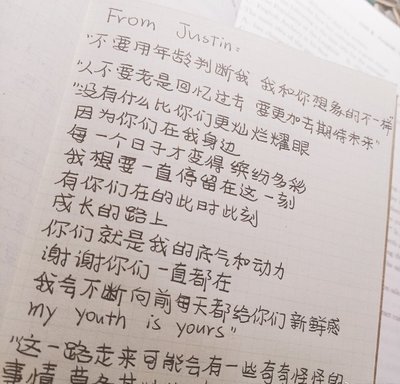 From Justin:
"不要用年龄判断我 我和你想象的不一样"
"人不要老是回忆过去 要更加去期待未来"
"没有什么比你们更灿烂耀眼
因为你们在我身边
每一个日子才变得缤纷多彩
我想要一直停留在这一刻
有你们在的此时此刻
成长的路上
你们就是我的底气和动力
谢谢你们一直都在
我会不断向前每天都给你们新鲜感
my youth is yours"
"这一路走来可能会有一些奇奇怪怪的
事情